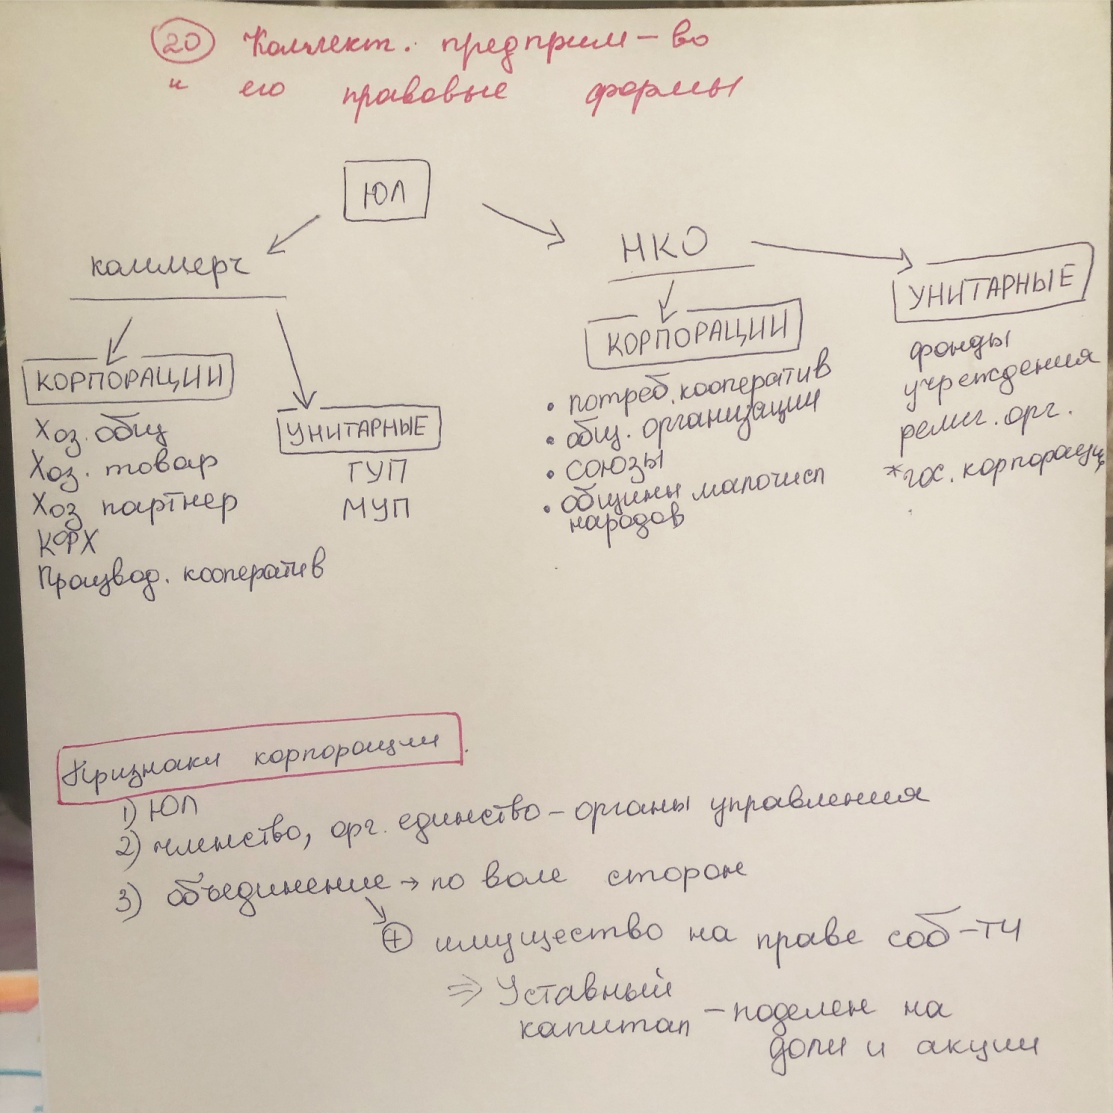 20 Коллект. предприм-во
и его правовые формы
ЮЛ
коммерч
НКО
КОРПОРАЦИИ
Хоз. общ
Хоз. товар
Хоз партнер
КФХ
Производ. кооператив
УНИТАРНЫЕ
ГУП
МУП
КОРПОРАЦИИ
• потреб. кооператив
• общ. организации
• союзы
• общины малочисл
народов
УНИТАРНЫЕ
фонды
учреждения
религ. орг.
*гос. корпорации
Признаки корпорации.
1) ЮЛ
2) членство, орг. единство – органы управления
3) объединение → по воле сторон
+ имущество на праве соб-ти
⇒ Уставный
капитал – поделен на
доли и акции